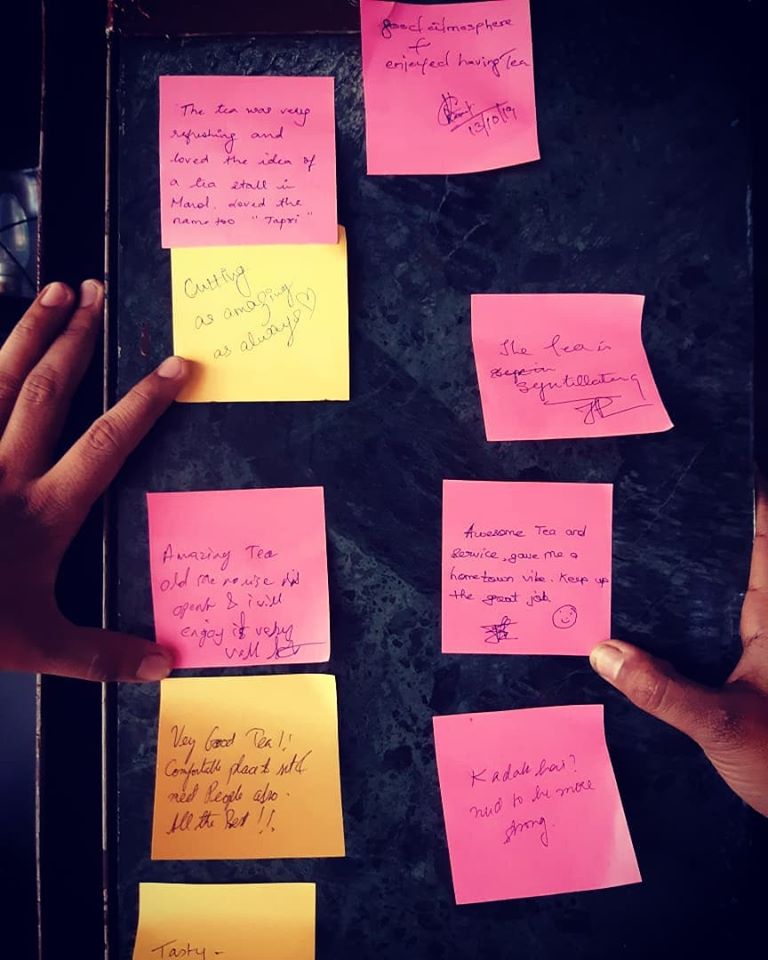 good atmosphere
&
enjoyed having Tea
13/10/19
The tea was very
refreshing and
loved the idea of
a tea stall in
Marol. Loved the
name too "Tapri"
Cutting
as amazing
as always
The Tea is
syntillating
Amazing Tea
old me
open & i will
enjoy it very
well
Awesome Tea and
service, gave me a
hometown vibe. Keep up
the great job
Very Good Tea!!
Comfortable place to sit &
meet People also.
All the Best!!
Kadak hai?
need to be more
strong.
Tasty -